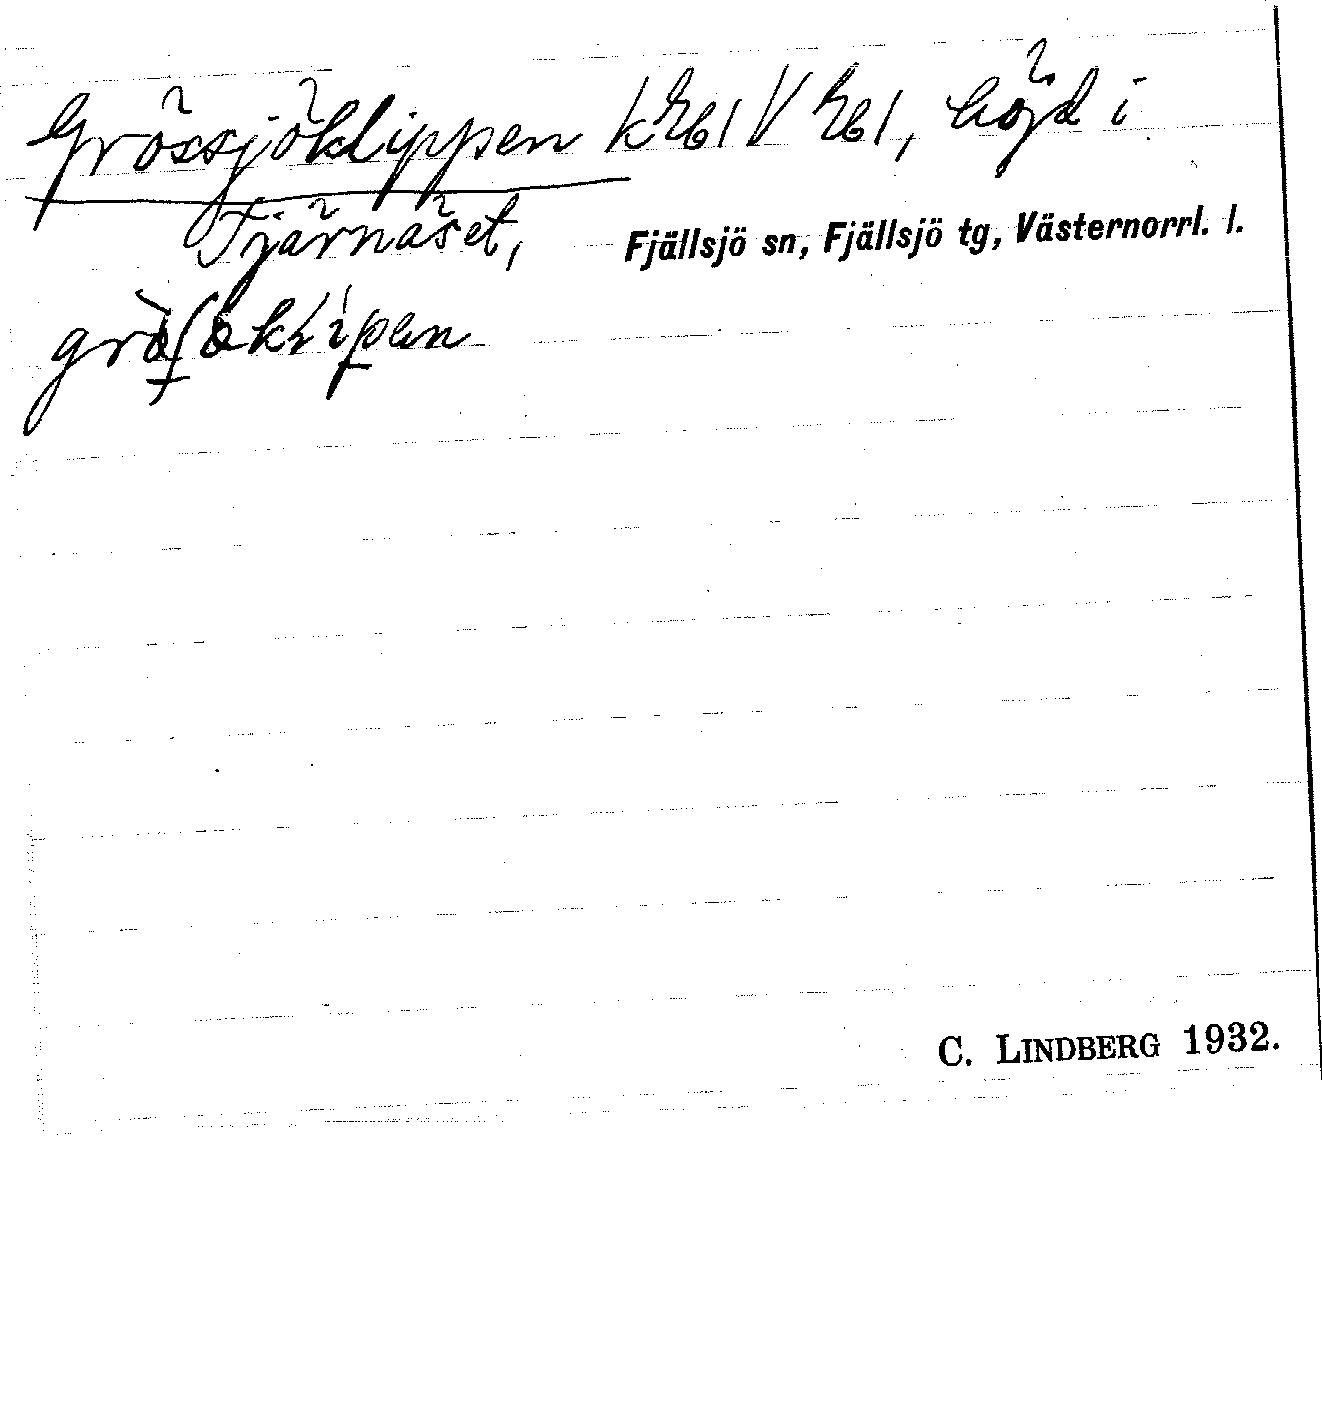 Grössjöklippen k Rb1 V Rb1, höjd i
Tjärnäset, Fjällsjö sn, Fjällsjö tg, Västernorrl. l.
C. LINDBERG 1932.